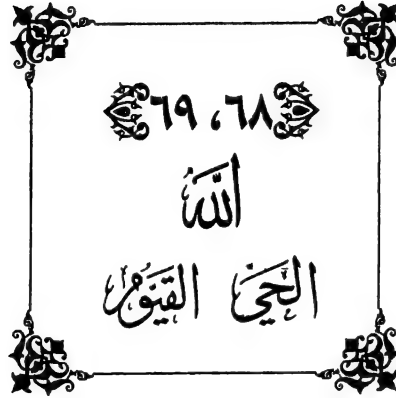 ٦٨، ٦٩
اللّٰه
الحَيّ القَيُّومُ